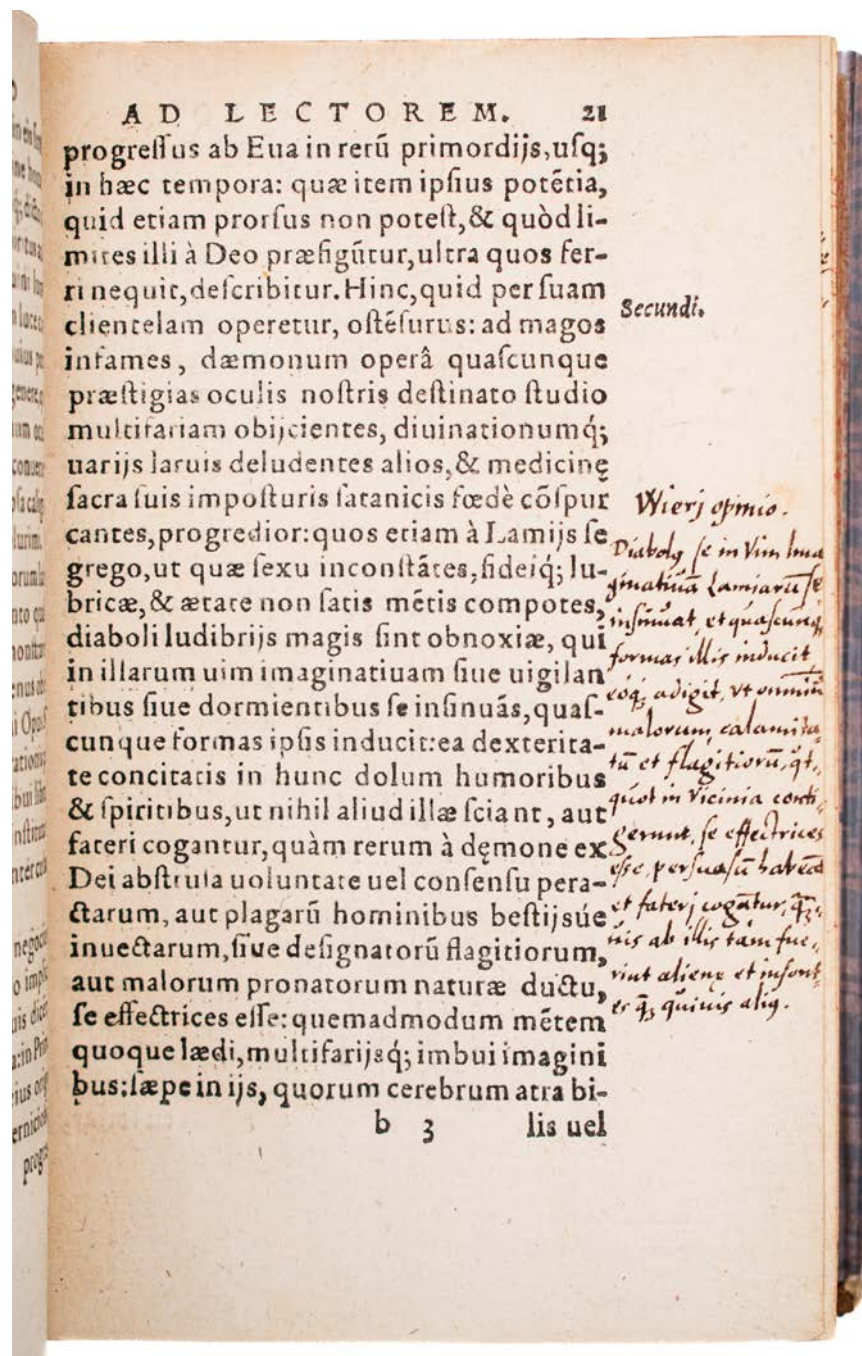 AD LECTOREM. 21
progreſſus ab Eua in rerū primordijs,uſq;
in hæc tempora: quæ item ipſius potētia,
quid etiam prorſus non poteſt,& quòd li-
mites illi à Deo præfigūtur,ultra quos fer-
ri nequit,deſcribitur.Hinc,quid per ſuam
clientelam operetur, oſtēſurus: ad magos
infames, dæmonum operâ quaſcunque
præſtigias oculis noſtris deſtinato ſtudio
multifariam obijcientes, diuinationumq́;
uarijs laruis deludentes alios,& medicinę
ſacra ſuis impoſturis ſatanicis fœdè cōſpur
cantes,progredior:quos etiam à Lamijs ſe
grego,ut quæ ſexu inconſtātes,fideiq́; lu-
bricæ,& ætate non ſatis mētis compotes,
diaboli ludibrijs magis ſint obnoxiæ, qui
in illarum uim imaginatiuam ſiue uigilan
tibus ſiue dormientibus ſe inſinuās,quaſ-
cunque formas ipſis inducit:ea dexterita-
te concitatis in hunc dolum humoribus
& ſpiritibus,ut nihil aliud illæ ſciant, aut
fateri cogantur,quàm rerum à dęmone ex
Dei abſtruſa uoluntate uel conſenſu pera-
ctarum, aut plagarū hominibus beſtijsúe
inuectarum,ſiue deſignatorū flagitiorum,
aut malorum pronatorum naturæ ductu,
ſe effectrices eſſe: quemadmodum mētem
quoque lædi,multifarijsq́; imbui imagini
bus:ſæpe in ijs, quorum cerebrum atra bi-
b 3 lis uel
Secundi.
Wierj opinio.
Diabolꝯ ſe in Vim Ima
ginatiuā Lamiarū ſe
inſinuat, et quaſcunq
formas illis inducit
eoq, adigit, vt omniū
malorum, calamita
tū et flagitiorū, qt,
quot in Vicinia conti
gerunt, ſe effectrices
eſſe, perſuaſū habeāt
et faterj cogātur,
nis ab illis tam fue,
rint alienę et inſont
es q, quiuis aliꝯ.